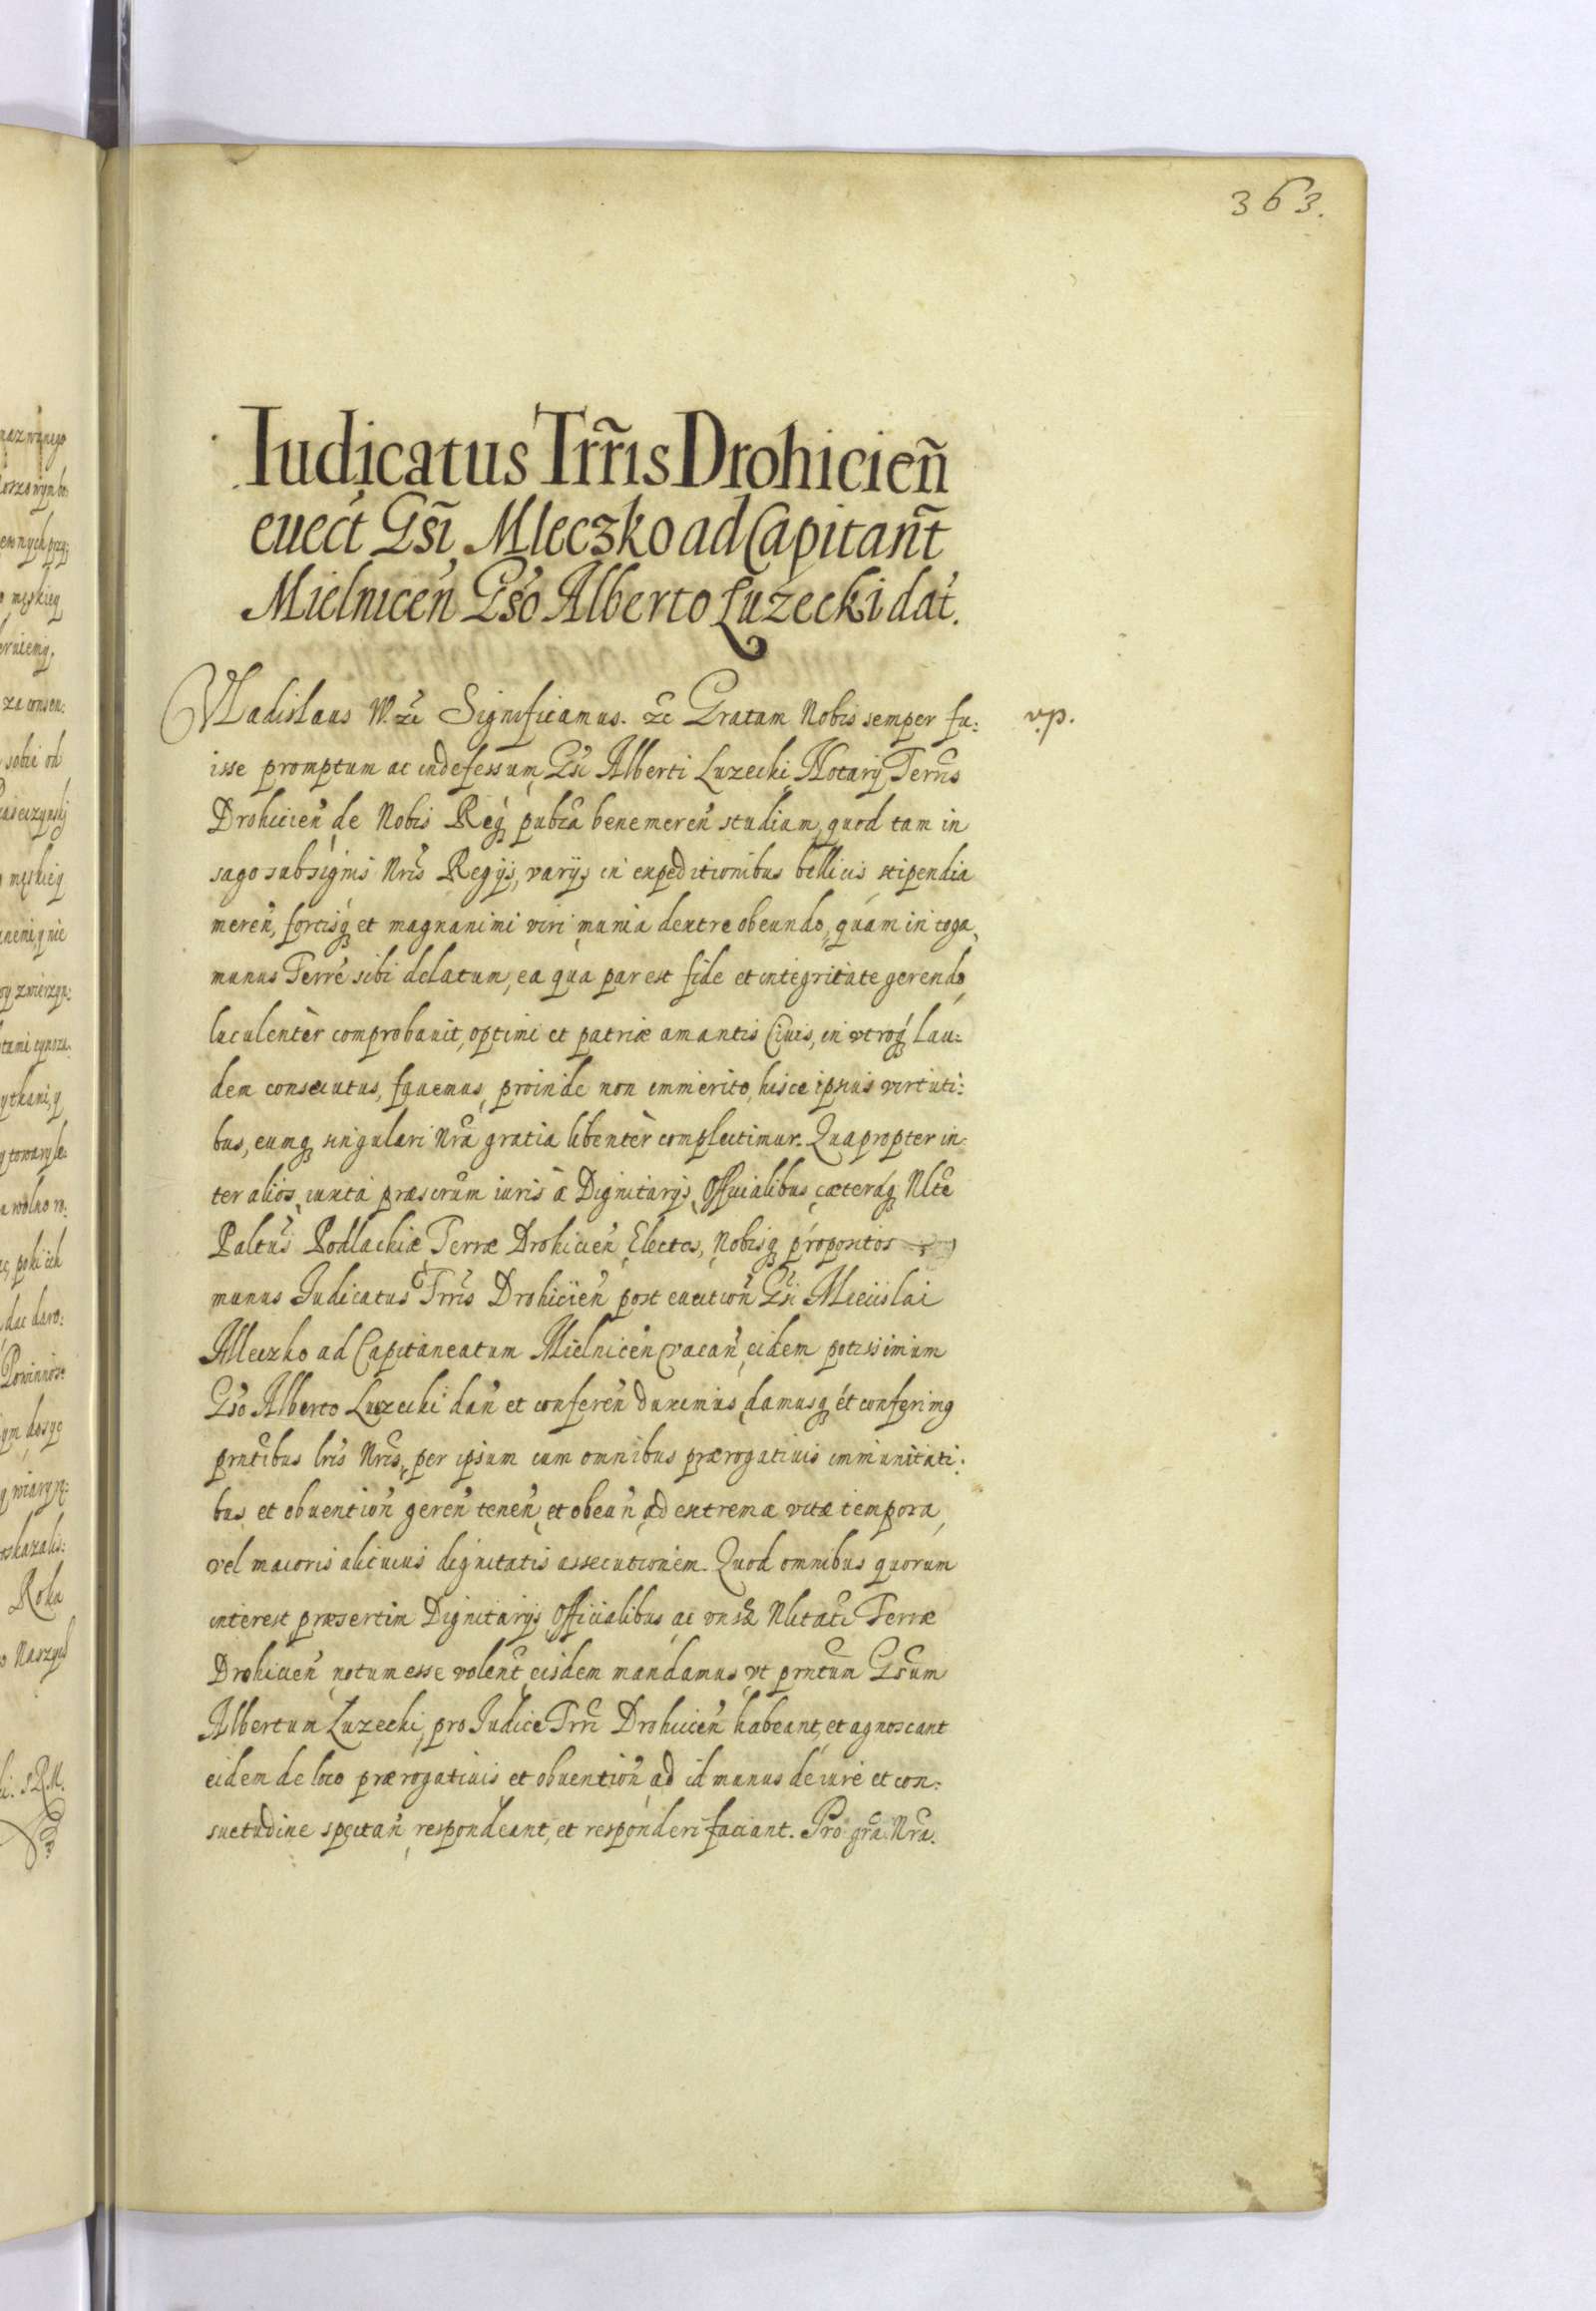 363.
Iudicatus Trr̃is Drohicien̄
euect Gs̃i Mleczko ad Capitan̄t
Mielnicen̄ Gs̃o Alberto Łuzecki dat.
Vladislaus IV. etc̃ Significamus. etc̃ Gratam Nobis semper fu:
v.p.
isse promptum ac indefessum Gs̃i Alberti Luzecki Notarij Terrn̄s
Drohicien̄ de Nobis Reqꝫ pub̃ca benemeren̄ studium, quod tam in
sago sub signis Nr̃is Regijs, varijs in expeditionibus bellicis stipendia
meren̄, fortisqꝫ et magnanimi viri munia dextre obeundo, quam in toga,
munus Terr̃e sibi delatum, ea qua par est fide et integritate gerendo,
luculentèr comprobauit, optimi et patriæ amantis Ciuis, in vtroqꝫ lau:
dem consecutus, fauemus proinde non immerito, hisce ipsius virtuti:
bus, eumqꝫ singulari Nr̃a gratia libentèr complectimur. Quapropter in:
ter alios iuxta præscr̃um iuris à Dignitarijs, Officialibus, cæteraqꝫ Nlt̃e
Paltũs Podlachiæ Terræ Drohicien̄ Electos, Nobisqꝫ propositos
munus Iudicatus Trr̃is Drohicien̄ post euection̄ Gs̃i Miecislai
Mleczko ad Capitaneatum Mielnicen̄ vacan̄ eidem potissimum
Gs̃o Alberto Luzecki dan̄ et conferen̄ duximus, damusqꝫ et conferimꝰ
prnt̃ibus lr̃is Nr̃is, per ipsum cum omnibus prærogatiuis immunitati:
bus et obuention̄ geren̄ tenen̄ et obeun̄ ad extrema vitæ tempora,
vel maioris alicuius dignitatis assecutionem. Quod omnibus quorum
interest præsertim Dignitarijs Officialibus ac vnisꝝ Nlitatĩ Terræ
Drohicien̄ notum esse volent̃ eisdem mandamus vt prnt̃um Gs̃um
Albertum Luzecki, pro Iudice Trr̃i Drohicien̄ habeant, et agnoscant
eidem de loco prærogatiuis et obuention̄ ad id munus de iure et con:
suetudine spectan̄ respondeant, et responderi faciant. Pro gr̃a Nr̃a.